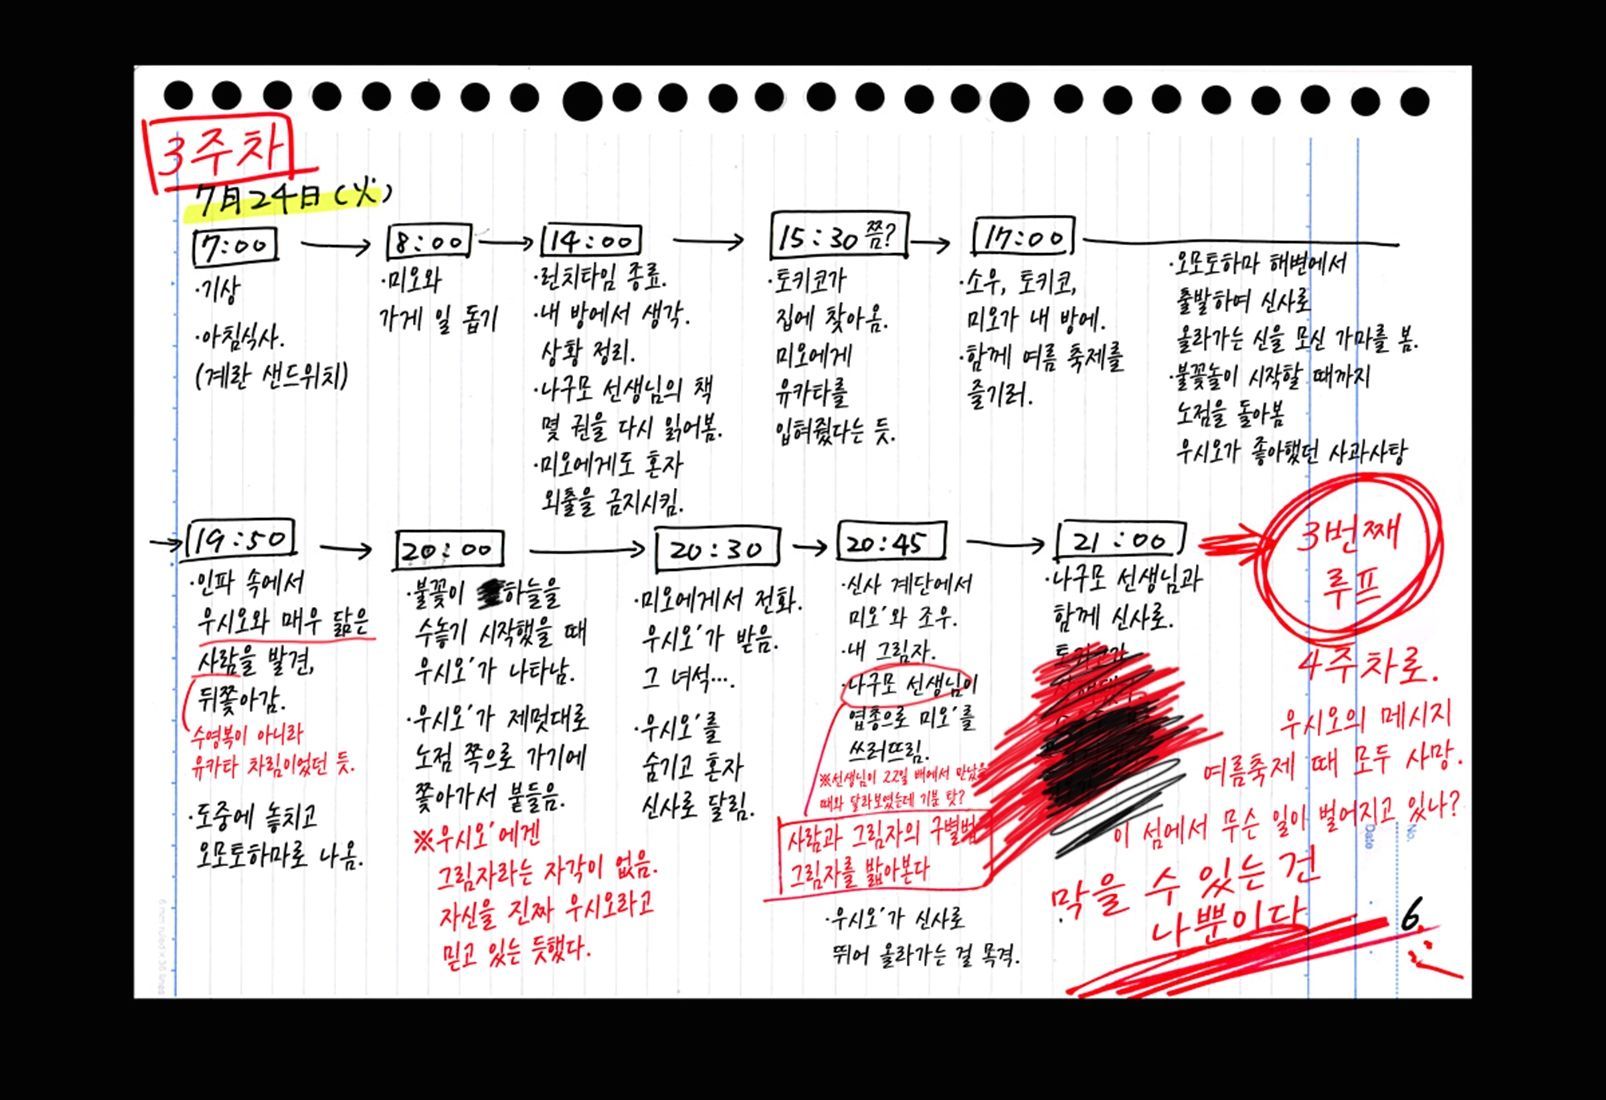 3주차
7月24日(火)
7:00
·기상
·아침식사.
(계란 샌드위치)
8:00
·미오와
가게 일 돕기
14:00
·런치타임 종료.
·내 방에서 생각.
상황 정리.
·나구모 선생님의 책
몇 권을 다시 읽어봄.
·미오에게도 혼자
외출을 금지시킴.
15:30 쯤?
·토키코가
집에 찾아옴.
미오에게
유카타를
입혀줬다는 듯.
17:00
·소우, 토키코,
미오가 내 방에.
·함께 여름 축제를
즐기러.
·오모토하마 해변에서
출발하여 신사로
올라가는 신을 모신 가마를 봄.
·불꽃놀이 시작할 때까지
노점을 돌아봄
우시오가 좋아했던 사과사탕
19:50
·인파 속에서
우시오와 매우 닮은
사람을 발견,
뒤쫓아감.
수영복이 아니라
유카타 차림이었던 듯.
·도중에 놓치고
오모토하마로 나옴.
20:00
·불꽃이 하늘을
수놓기 시작했을 때
우시오'가 나타남.
·우시오'가 제멋대로
노점 쪽으로 가기에
쫓아가서 붙들음.
※우시오'에겐
그림자라는 자각이 없음.
자신을 진짜 우시오라고
믿고 있는 듯했다.
20:30
·미오에게서 전화.
우시오'가 받음.
그 녀석….
·우시오'를
숨기고 혼자
신사로 달림.
20:45
·신사 계단에서
미오'와 조우.
·내 그림자.
·나구모 선생님이
엽총으로 미오'를
쓰러뜨림.
※선생님이 22일 배에서 만났을
때와 달라보였는데 기분 탓?
사람과 그림자의 구별법
그림자를 밟아본다
·우시오'가 신사로
뛰어 올라가는 걸 목격.
21:00
·나구모 선생님과
함께 신사로.
3번째
루프
4주차로.
우시오의 메시지
여름축제 때 모두 사망.
이 섬에서 무슨 일이 벌어지고 있나?
막을 수 있는 건
나뿐이다
No.
Date
6